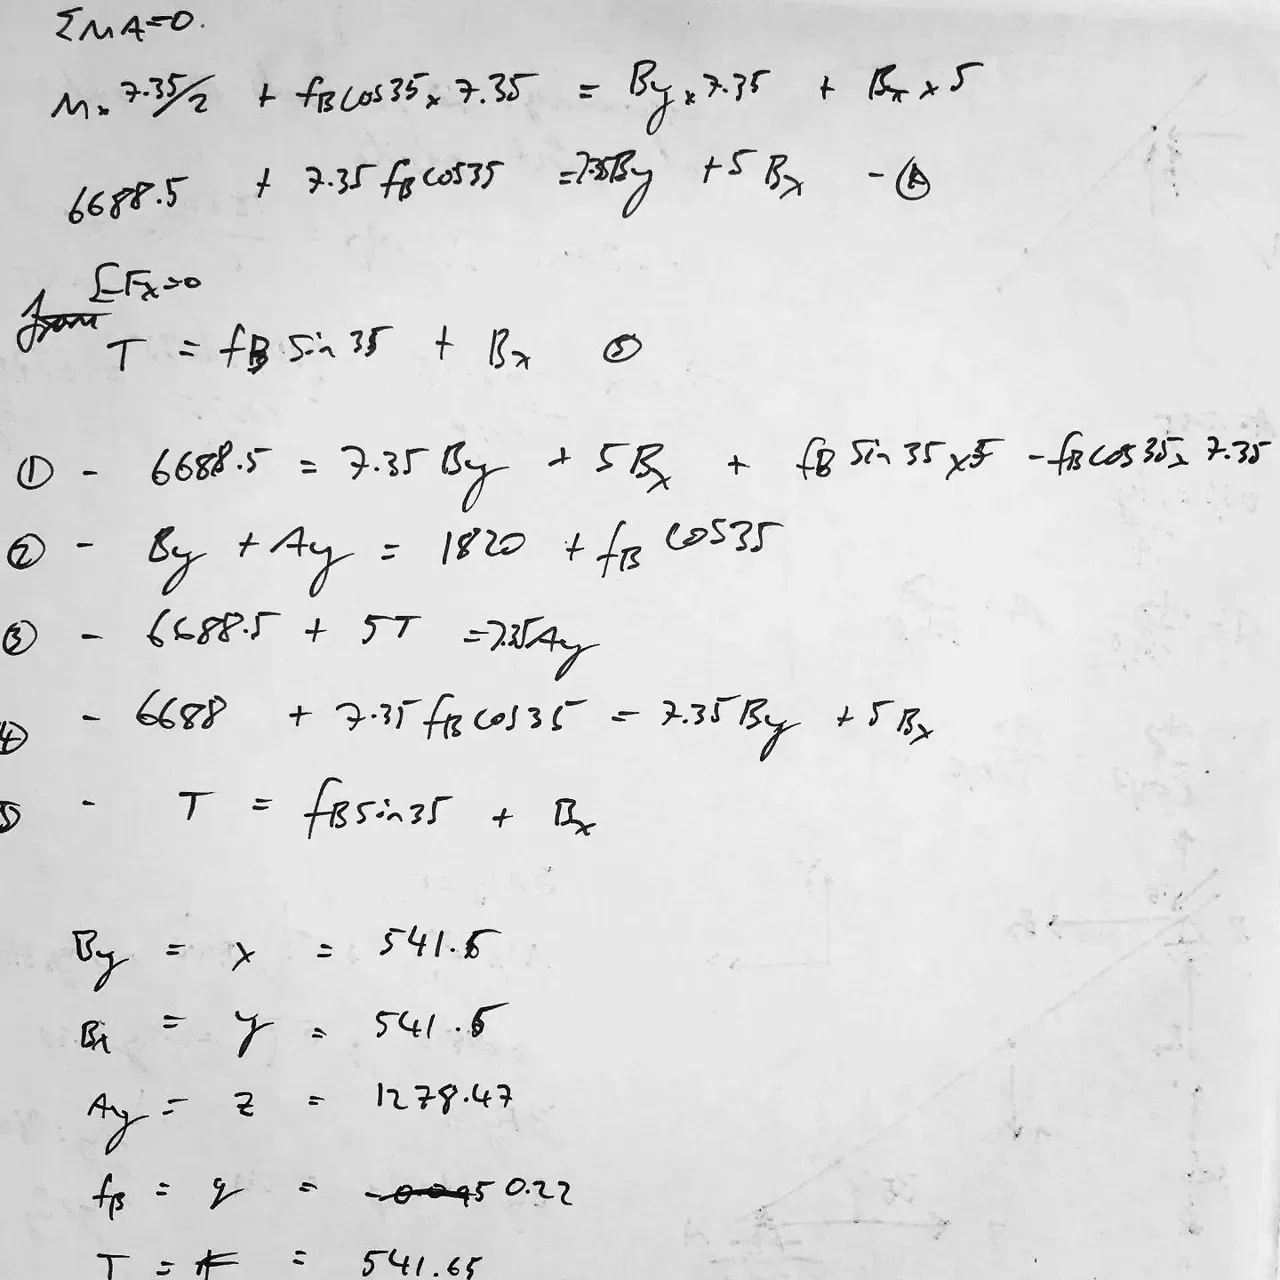 ΣMA=0.
M× 7.35/2 + fBcos35× 7.35 = By×7.35 + Bx × 5
6688.5 + 7.35 fBcos35 =7.35By +5 Bx - ④
ΣFx=0
T = fB Sin 35 + Bx ⑤
① - 6688.5 = 7.35 By + 5Bx + fB Sin 35 ×5 - fBcos35× 7.35
② - By + Ay = 1820 + fB cos35
③ - 6688.5 + 5T =7.35Ay
④ - 6688 + 7.35 fBcos35 = 7.35By + 5Bx
⑤ - T = fBSin35 + Bx
By = x = 541.6
Bx = y = 541.6
Ay = z = 1278.47
fB = q = 0.22
T = = 541.65